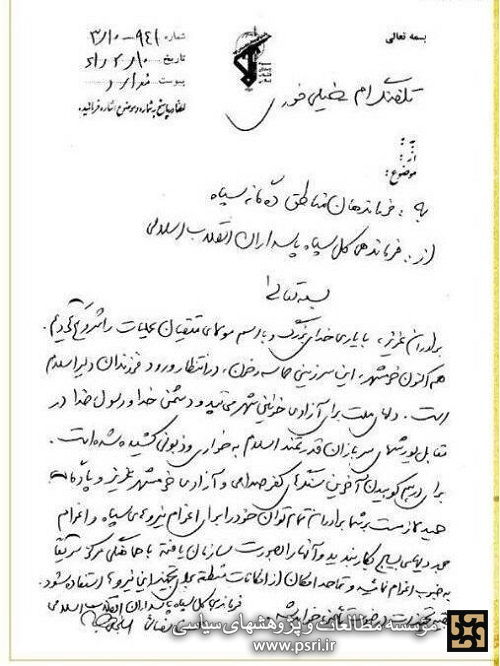 بسمه تعالی
شماره
تاریخ
پیوست ندارد
لطفا در پاسخ به شماره و موضوع اشاره فرمائید.
تلفنگرام خیلی فوری
به :
از :
موضوع :
به : فرماندهان مناطق ده گانه سپاه
از : فرماندهی کل سپاه پاسداران انقلاب اسلامی
بسمه تعالی
برادران عزیز، با یاری خدای بزرگ و با اسم مولای متقیان عملیات را شروع کردیم.
هم اکنون خونین شهر، این سرزمین حماسه و خون، در انتظار ورود فرزندان دلیر اسلام
است. دلهای ملت برای آزادی خونین شهر می تپد و دشمن خدا و رسول خدا در
مقابل یورشهای سربازان قدرتمند اسلام به خواری و زبونی کشیده شده است.
برای درهم کوبیدن آخرین سنگرهای کفر صدامی و آزادی خرمشهر عزیز و
شما برادران تمام توان خود را برای اعزام نیروهای سپاه و اعزام
بسیج بکار بندید و آنها را بصورت سازمان یافته با هماهنگی مرکز سریعا
به جنوب اعزام نمائید و تا حد امکان از امکانات منطقه برای تجهیز این نیرو استفاده شود.
فرماندهی کل سپاه پاسداران انقلاب اسلامی
تجهیزات در جنوب تأمین خواهد شد
مؤسسه مطالعات و پژوهشهای سیاسی
www.psri.ir